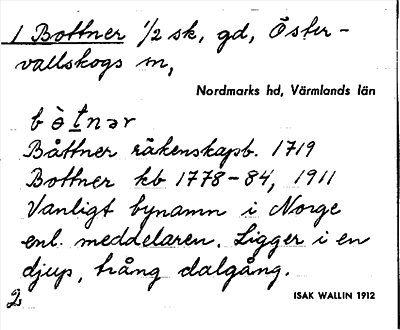 1 Bottner 1/2 sk, gd, Öster-
vallskogs sn,
Nordmarks hd, Värmlands län
b ò t n ə r
Båttner räkenskapsb. 1719
Bottner kb 1778-84, 1911
Vanligt bynamn i Norge
enl. meddelaren. Ligger i en
djup, trång dalgång.
2
ISAK WALLIN 1912